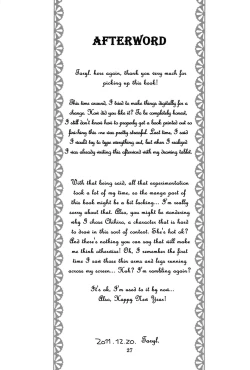 AFTERWORD
Taryl, here again, thank you very much for
picking up this book!
This time around, I tried to make things digitally for a
change. How did you like it? To be completely honest,
I still don't know how to properly get a book printed out so
finishing this one was pretty stressful. Last time, I said
I would try to type everything out, but when I realized
I was already writing this afterword with my drawing tablet.
With that being said, all that experimentation
took a lot of my time, so the manga part of
this book might be a bit lacking... I'm really
sorry about that. Also, you might be wondering
why I chose Chihiro, a character that is hard
to draw in this sort of context. She's hot ok?
And there's nothing you can say that will make
me think otherwise! Oh, I remember the first
time I saw those thin arms and legs running
across my screen... Huh? I'm rambling again?
It's ok, I'm used to it by now...
Also, Happy New Year!
2011.12.20. Taryl.
27